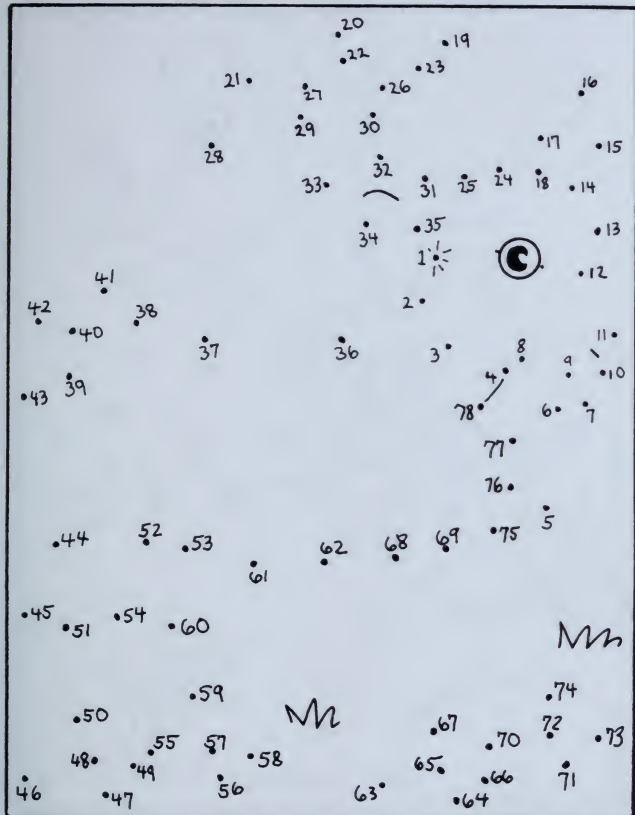 20
19
22
23
21
27
26
16
29
30
28
17
15
32
33
31
25
24
18
14
34
35
13
1
12
41
2
42
38
40
11
37
36
3
8
39
4
9
10
43
78
6
7
77
76
5
44
52
53
62
68
69
75
61
45
51
54
60
59
74
50
67
72
70
73
48
55
57
58
49
65
71
46
47
56
63
66
64